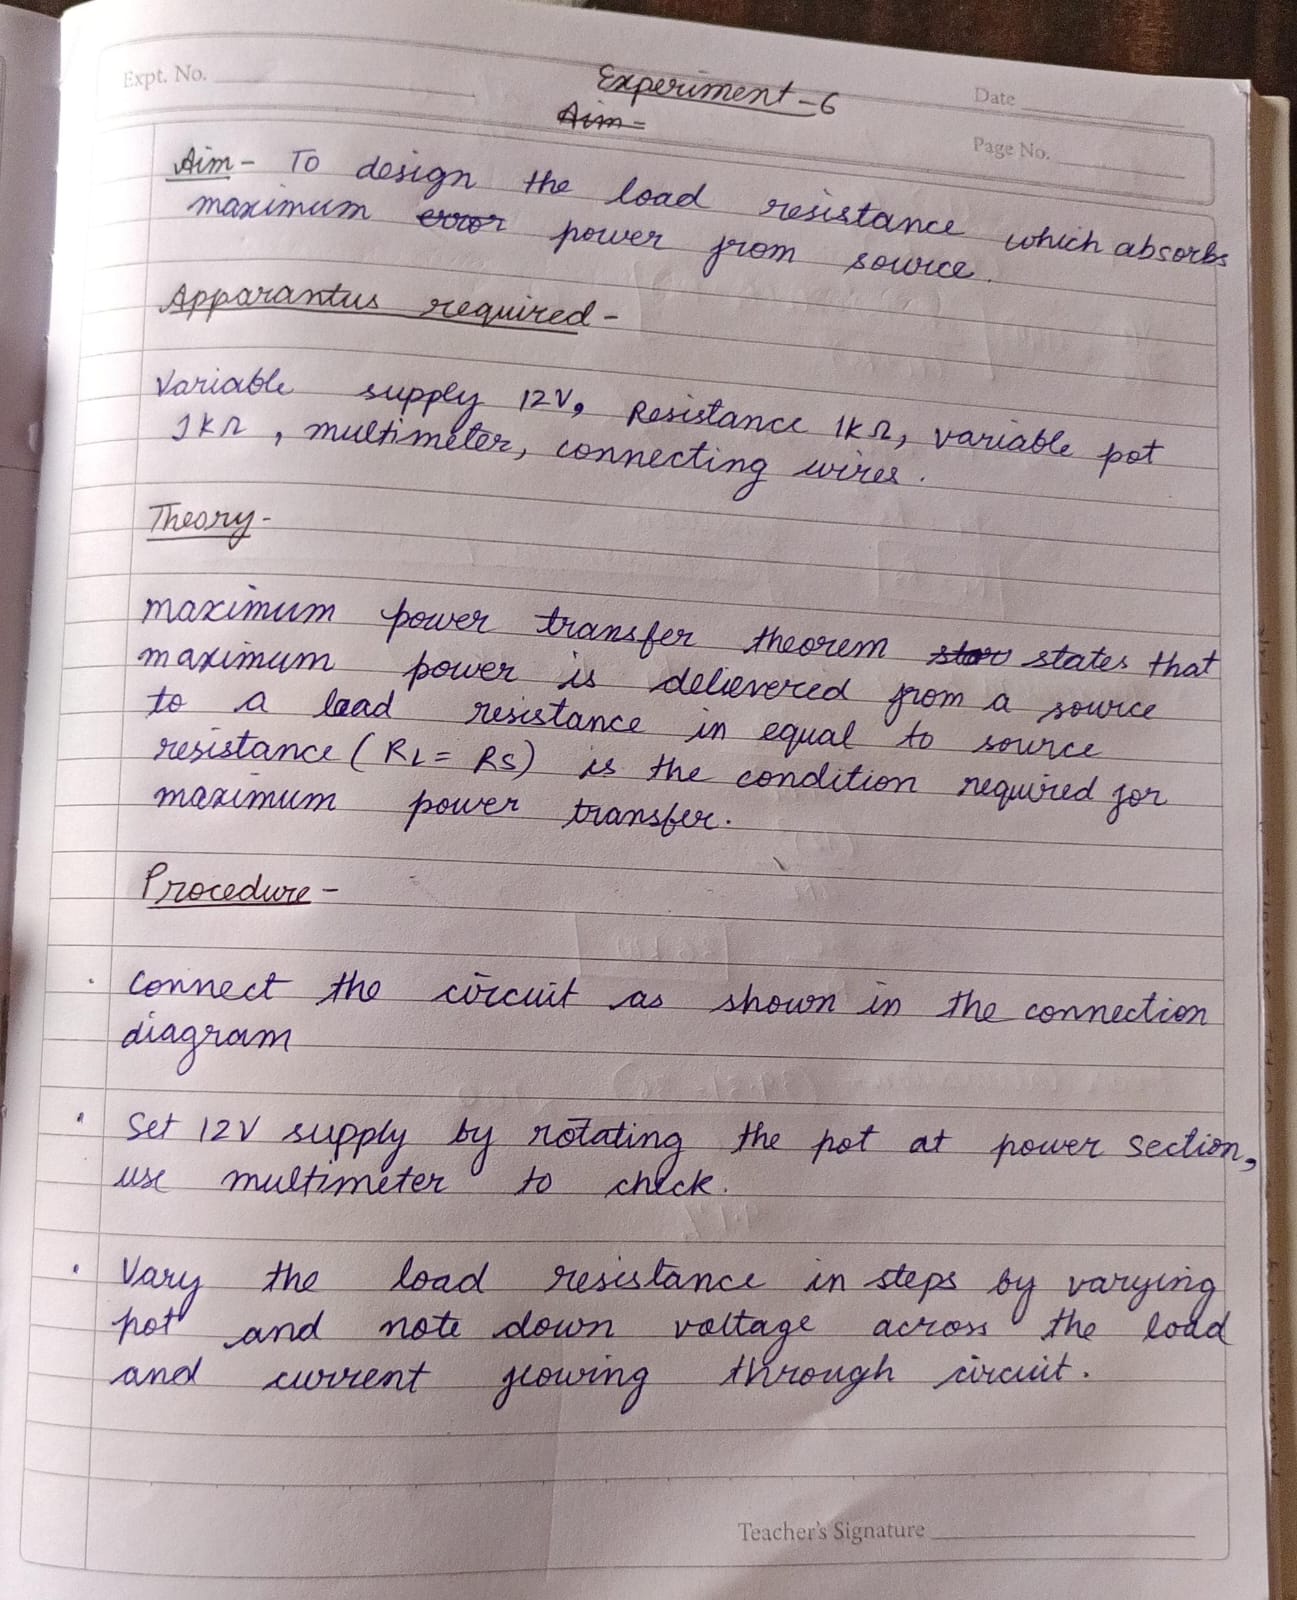 Expt. No.
Experiment-6
Date
Aim-
Page No.
Aim- To design the load resistance which absorbs
maximum error power from source.
Apparantus required-
Variable supply 12V, Resistance 1kΩ, variable pot
1kΩ, multimeter, connecting wires.
Theory-
maximum power transfer theorem states that
maximum power is delievered from a source
to a load resistance in equal to source
resistance (RL = RS) is the condition required for
maximum power transfer.
Procedure-
. Connect the circuit as shown in the connection
diagram
. Set 12V supply by rotating the pot at power section,
use multimeter to check.
. Vary the load resistance in steps by varying
pot and note down voltage across the load
and current flowing through circuit.
Teacher's Signature